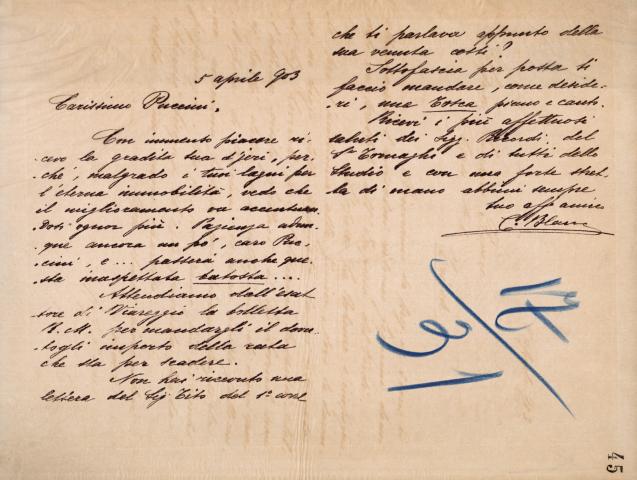 5 aprile 903
Carissimo Puccini,
Con immenso piacere ri-
cevo la gradita tua d'jeri, per-
chè, malgrado i tuoi lagni per
l'eterna immobilità, vedo che
il miglioramento va accentuan-
dosi ognor più. Pazienza adun-
que ancora un pò, caro Puc-
cini, e... passerà anche que-
sta inaspettata batosta....
Attendiamo dall'esat-
tore di Viareggio la bolletta
R. M. per mandargli il
importo della rata
che sta per scadere.
Non hai ricevuto una
lettera del Sig Tito del 1° corr
che ti parlava appunto della
sua venuta costì?
Sottofascia per posta ti
faccio mandare, come deside-
ri, una Tosca piano e canto.
Ricevi i più affettuosi
saluti dei Sigg. Ricordi, del
Tornaghi e di tutti dello
Studio e con una forte stret-
ta di mano abbimi sempre
tuo aff amico
C. Blanc
17/31
45